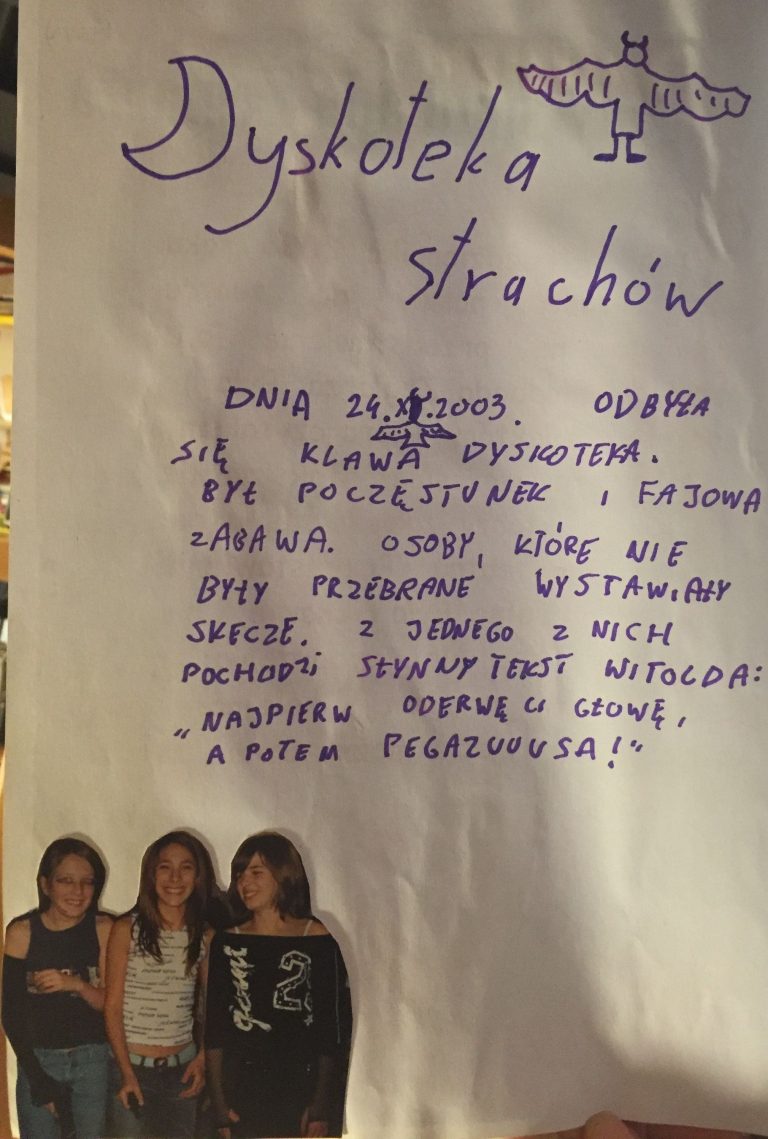 Dyskoteka
strachów
DNIA 24.XI.2003. ODBYŁA
SIĘ KLAWA DYSKOTEKA.
BYŁ POCZĘSTUNEK I FAJOWA
ZABAWA. OSOBY, KTÓRE NIE
BYŁY PRZEBRANE WYSTAWIAŁY
SKECZE. Z JEDNEGO Z NICH
POCHODZI SŁYNNY TEKST WITOLDA:
„NAJPIERW ODERWĘ CI GŁOWĘ,
A POTEM PEGAZUUUSA!"